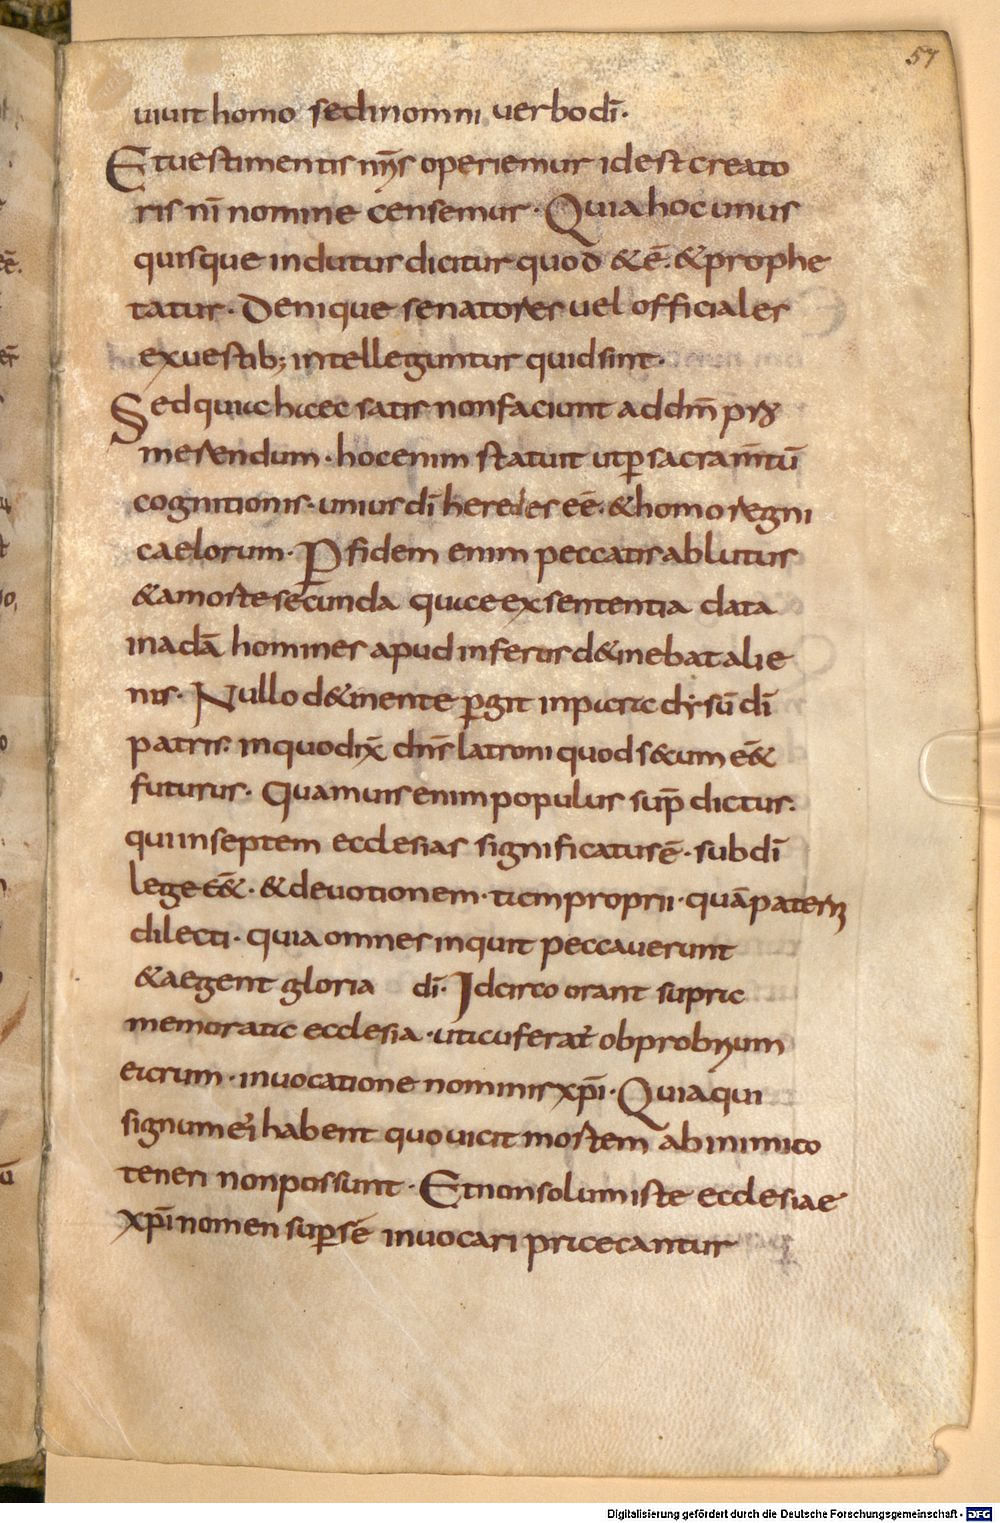 57
uiuit homo sed in omni uerbo dī·
Et uestimentis nr̄is operiemur id est creato
ris nr̄i nomine censemur· Quia hoc unus
quisque indutus dicitur quod & ē· & prophe
tatur· Denique senatores uel officiales
ex uestib; intelleguntur quid sint·
Sed quia haec satis non faciunt ad dm̄
merendum· hoc enim statuit ut p̲ sacram̄tū
cognitionis· unius dī heredes eē· & homo regni
caelorum· P̲ fidem enim peccatis ablutus
& a morte secunda quae ex sententia data
in adā homines apud inferos d&inebat alie
nus· Nullo d&inente p̲git in
patris· in quo dix̄ dn̄s latroni quod secum e͞e&
futurus· Quamuis enim populus sup̲ dictus·
qui in septem ecclesias significatus ē· sub dī
lege e͞e&· & deuotionem· tam proprii· quā paterni
dilecti· quia omnes inquit peccauerunt
& aegent gloria dī· Idcirco orant supra
memoratae ecclesia· uti auferat' obprobrium
earum· inuocatione nominis xp̄i· Quia qui
signum ei' habent quo uicit mortem ab inimico
teneri non possunt· Et non solum iste ecclesiae
xp̄i nomen sup̲ se inuocari praecantur
Digitalisierung gefördert durch die Deutsche Forschungsgemeinschaft - DFG